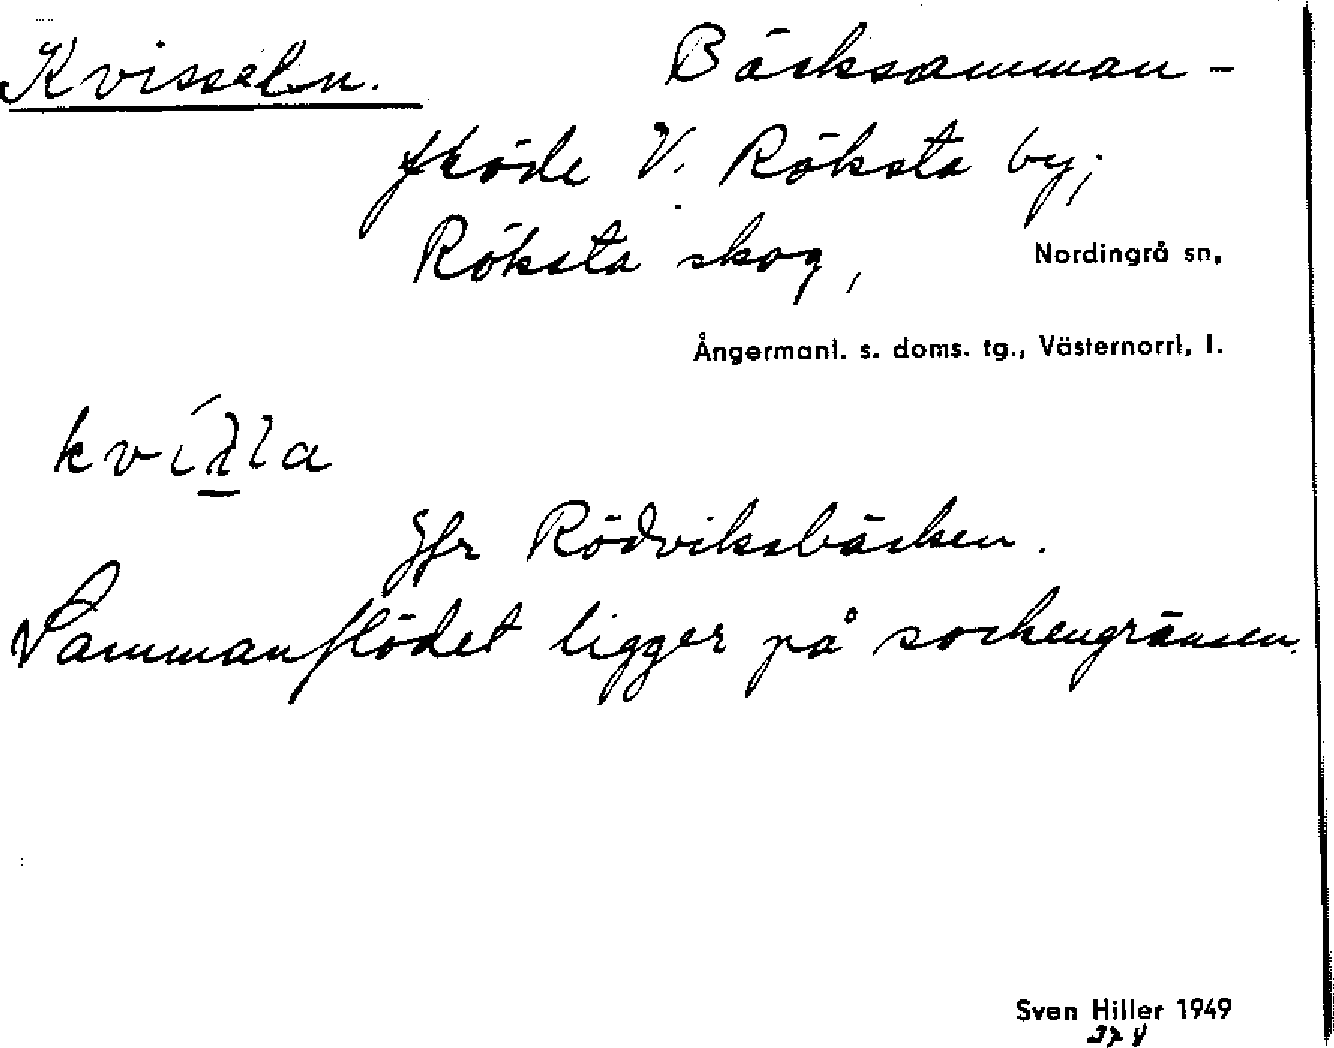 Kvisseln. Bäcksamman-
flöde V. Röksta by;
Röksta skog, Nordingrå sn,
Ångermanl. s. doms. tg., Västernorrl. l.
Jfr Rödviksbäcken.
Sammanflödet ligger på sockengränsen.
Sven Hiller 1949